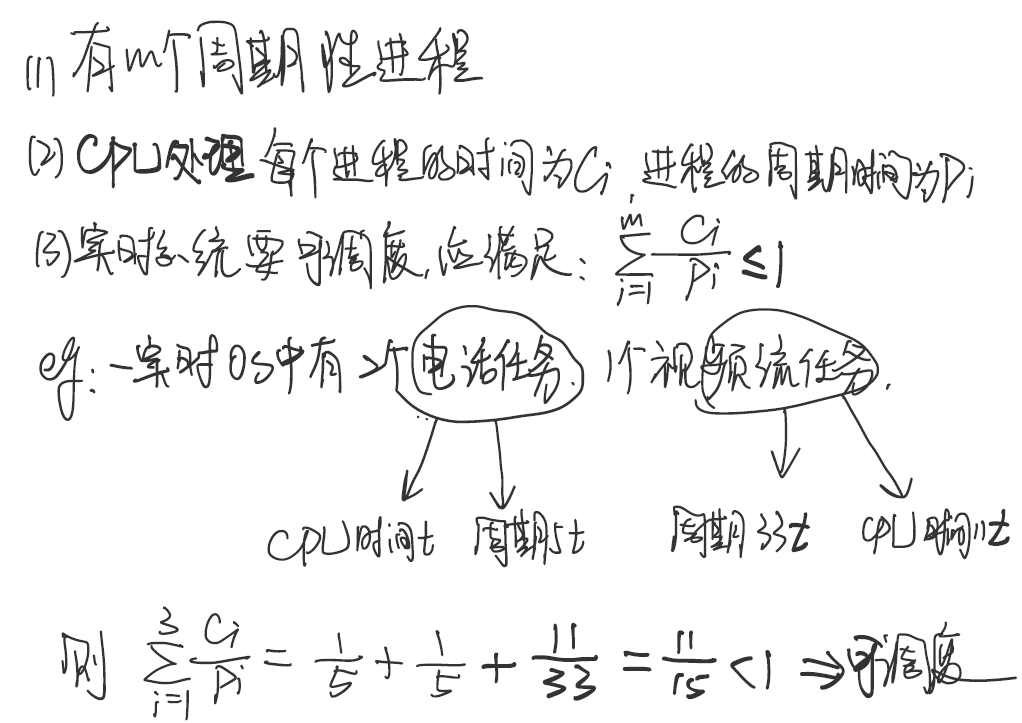 (1) 有m个周期性进程
(2) CPU处理每个进程的时间为Ci,进程的周期时间为Pi
(3) 实时系统要可调度,应满足: \sum_{i=1}^{m} \frac{Ci}{Pi} ≤ 1
eg: 一实时OS中有2个电话任务、1个视频流任务.
CPU时间t 周期5t 周期33t CPU时间11t
则 \sum_{i=1}^{3} \frac{Ci}{Pi} = \frac{1}{5} + \frac{1}{5} + \frac{11}{33} = \frac{11}{15} < 1 ⇒ 可调度